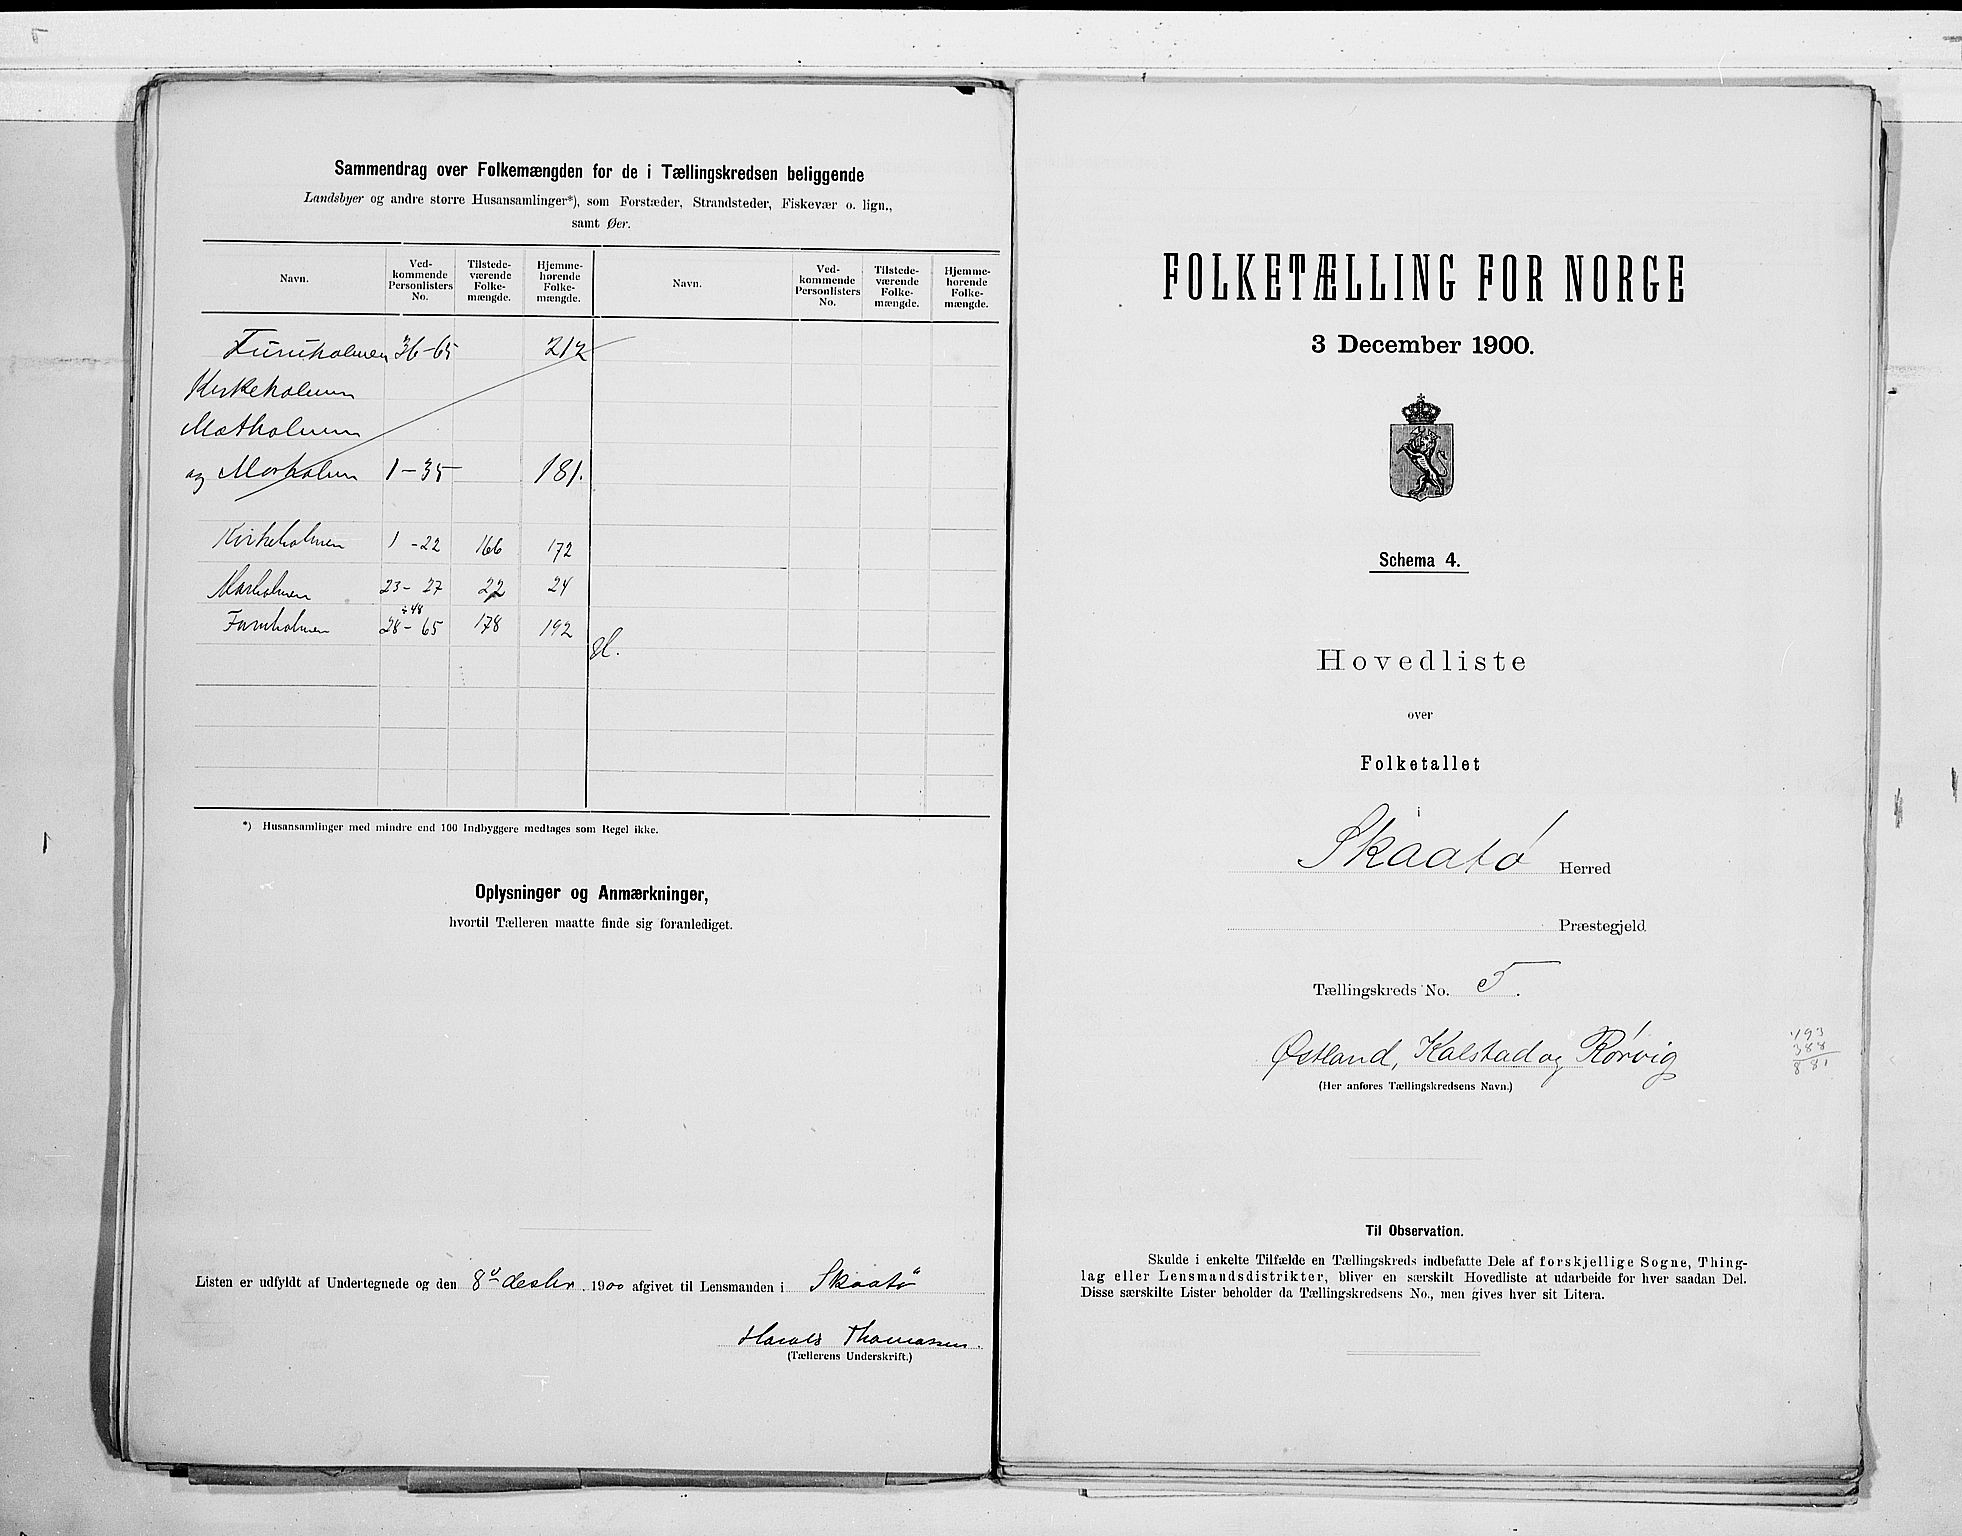 Sammendrag over Folkemængden for de i Tællingskredsen beliggende
Landsbyer og andre større Husansamlinger*), som Forstæder, Strandsteder, Fiskevær o. lign.,
samt Øer.
Navn. Ved-kommende Personlisters No. Tilstede-værende Folke-mængde. Hjemme-hørende Folke-mængde. Navn. Ved-kommende Personlisters No. Tilstede-værende Folke-mængde. Hjemme-hørende Folke-mængde.
Furuholmen 36-65 212
Kirkeholmen
Mætholmen
og Morholmen 1-35 181.
Kirkeholmen 1-22 166 172
Morholmen 23-27 22 24
÷48
Furuholmen 28-65 178 192
*) Husansamlinger med mindre end 100 Indbyggere medtages som Regel ikke.
Oplysninger og Anmærkninger,
hvortil Tælleren maatte finde sig foranlediget.
Listen er udfyldt af Undertegnede og den 8d desbr. 1900 afgivet til Lensmanden i Skaatø
Harald Thomassen.
(Tællerens Underskrift.)
FOLKETÆLLING FOR NORGE
3 December 1900.
Schema 4.
Hovedliste
over
Folketallet
i
Skaatø Herred
Præstegjeld
Tællingskreds No. 5.
Østland, Kalstad og Rørvig
(Her anføres Tællingskredsens Navn.)
493
388
881
Til Observation.
Skulde i enkelte Tilfælde en Tællingskreds indbefatte Dele af forskjellige Sogne, Thing-
lag eller Lensmandsdistrikter, bliver en særskilt Hovedliste at udarbeide for hver saadan Del.
Disse særskilte Lister beholder da Tællingskredsens No., men gives hver sit Litera.